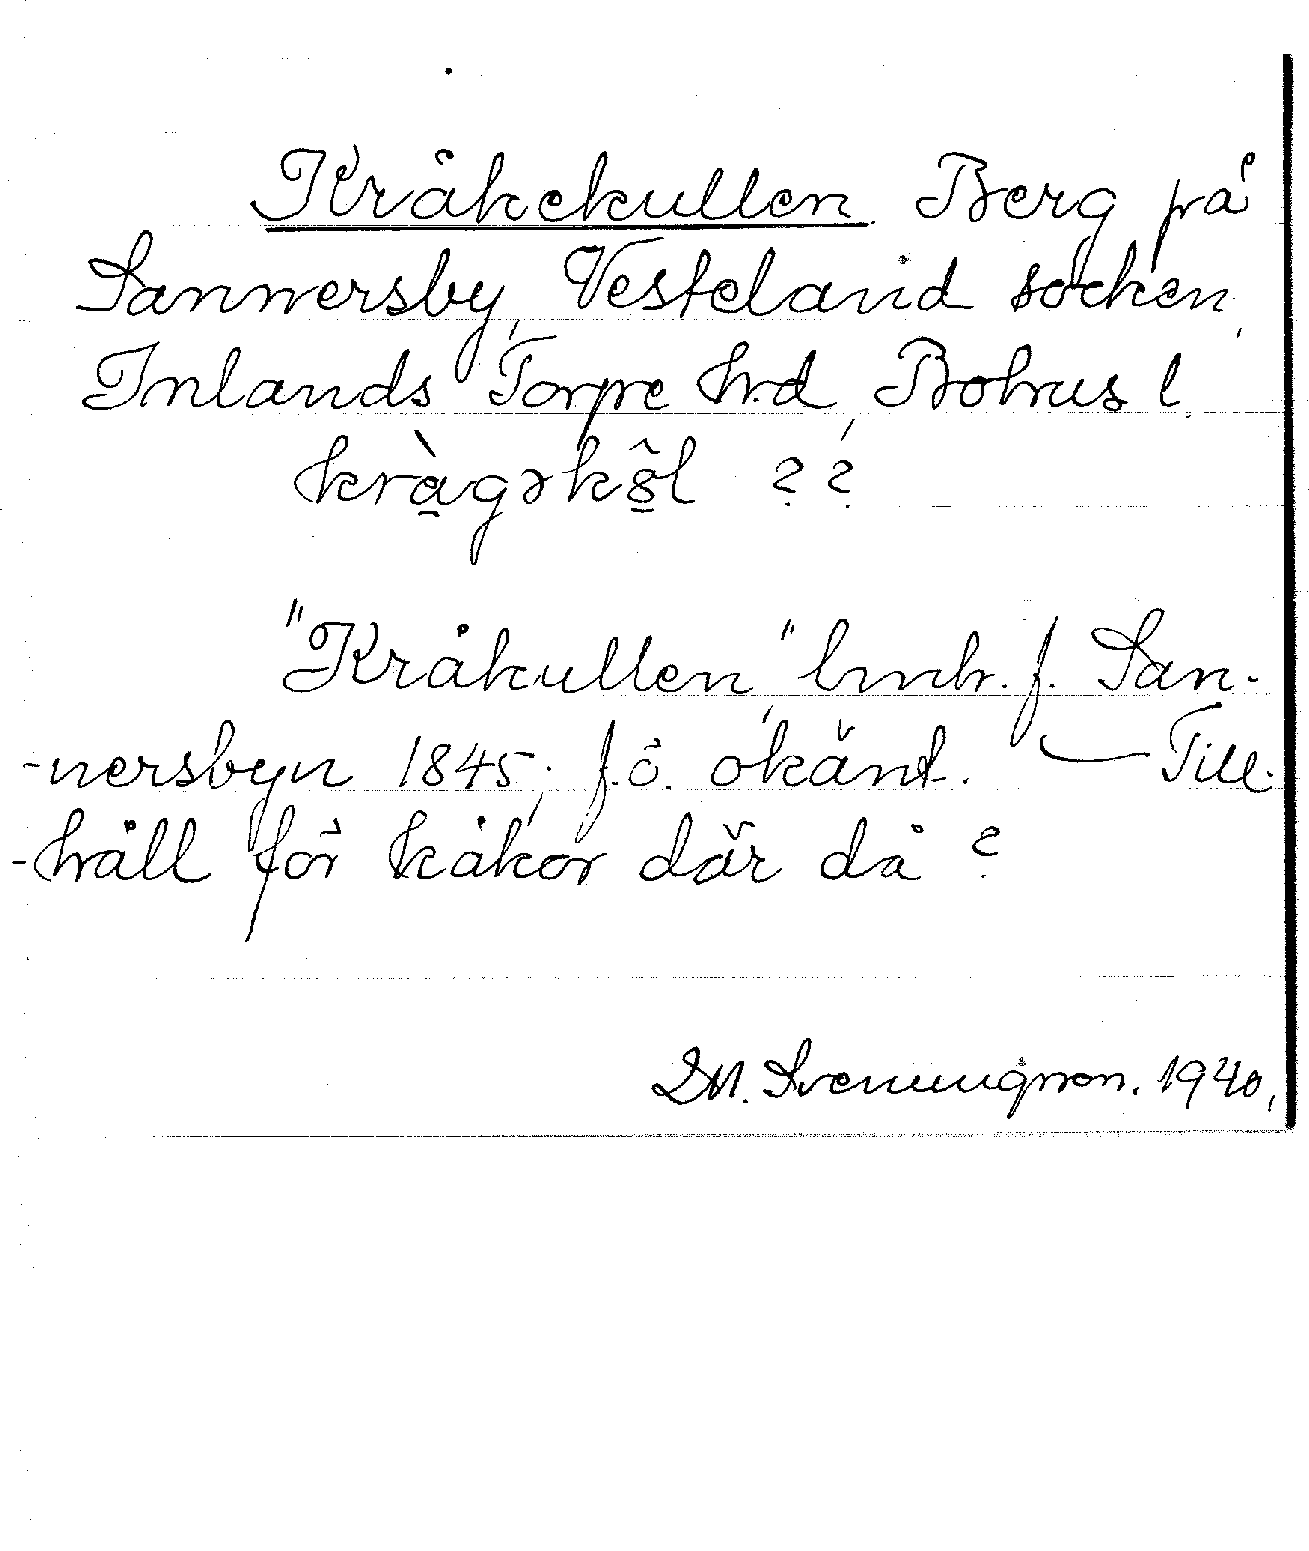 Kråkekullen. Berg på
Sannersby, Vesteland socken,
Inlands Torpe hd, Bohus l.
kràgəkôl ??
"Kråkullen," lmh. f. San-
-nersbyn 1845; f. ö. okänt. — Till-
-håll för kåkor där då?
D.M. Svenungsson. 1940.